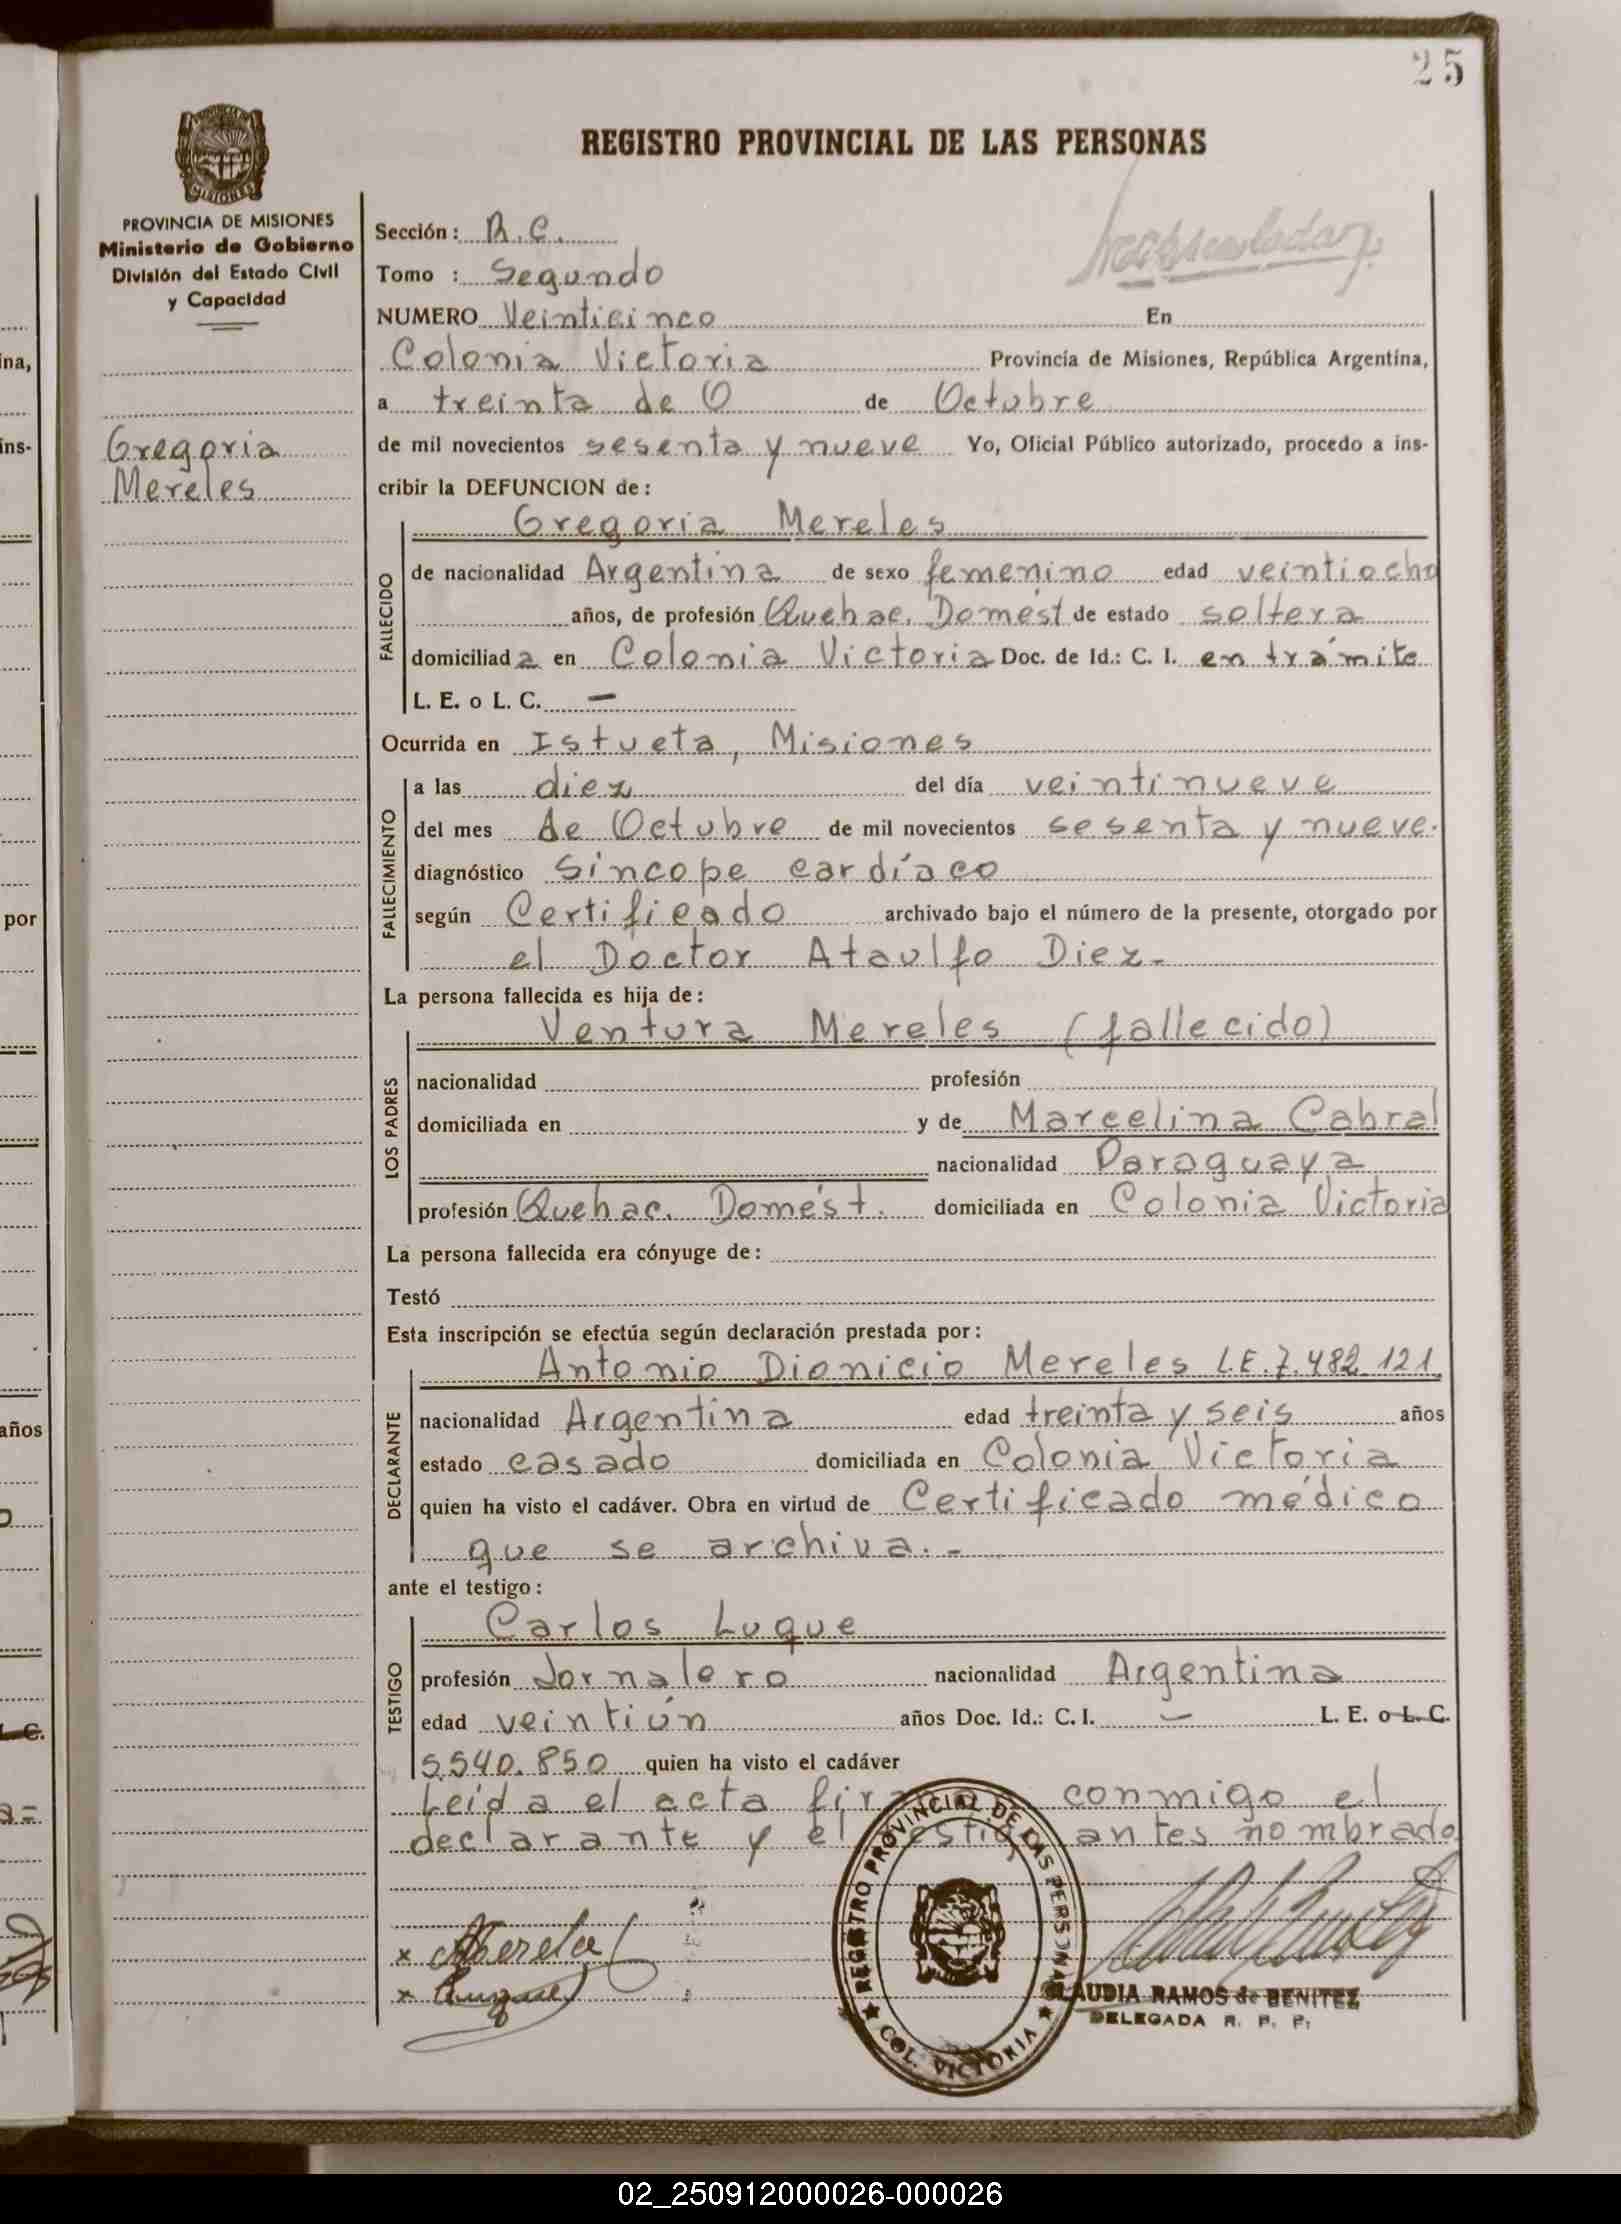 25
REGISTRO PROVINCIAL DE LAS PERSONAS
MISIONES
PROVINCIA DE MISIONES
Ministerio de Gobierno
División del Estado Civil
y Capacidad
Gregoria
Mereles
Sección: R.C.
Tomo : Segundo
NUMERO Veinticinco En
Colonia Victoria Provincia de Misiones, República Argentina,
a treinta de O de Octubre
de mil novecientos sesenta y nueve Yo, Oficial Público autorizado, procedo a ins-
cribir la DEFUNCION de:
FALLECIDO
Gregoria Mereles
de nacionalidad Argentina de sexo femenino edad veintiocho
años, de profesión Quehac. Domést de estado soltera
domiciliada en Colonia Victoria Doc. de Id.: C. I. en trámite
L. E. o L. C. —
Ocurrida en Istueta, Misiones
FALLECIMIENTO
a las diez del día veintinueve
del mes de Octubre de mil novecientos sesenta y nueve.
diagnóstico Síncope cardíaco
según Certificado archivado bajo el número de la presente, otorgado por
el Doctor Ataulfo Diez.-
La persona fallecida es hija de:
LOS PADRES
Ventura Mereles (fallecido)
nacionalidad profesión
domiciliada en y de Marcelina Cabral
nacionalidad Paraguaya
profesión Quehac. Domést. domiciliada en Colonia Victoria
La persona fallecida era cónyuge de:
Testó
Esta inscripción se efectúa según declaración prestada por:
DECLARANTE
Antonio Dionicio Mereles L.E. 7.482.121
nacionalidad Argentina edad treinta y seis años
estado casado domiciliada en Colonia Victoria
quien ha visto el cadáver. Obra en virtud de Certificado médico
que se archiva.-
ante el testigo:
TESTIGO
Carlos Luque
profesión Jornalero nacionalidad Argentina
edad veintiún años Doc. Id.: C. I. — L. E. o L. C.
5.540.850 quien ha visto el cadáver
Leída el acta conmigo el
declarante y el testigo antes nombrado
REGISTRO PROVINCIAL DE LAS PERSONAS
COL. VICTORIA
CLAUDIA RAMOS de BENITEZ
DELEGADA R. P. P.
ina,
ins-
por
años
02_250912000026-000026